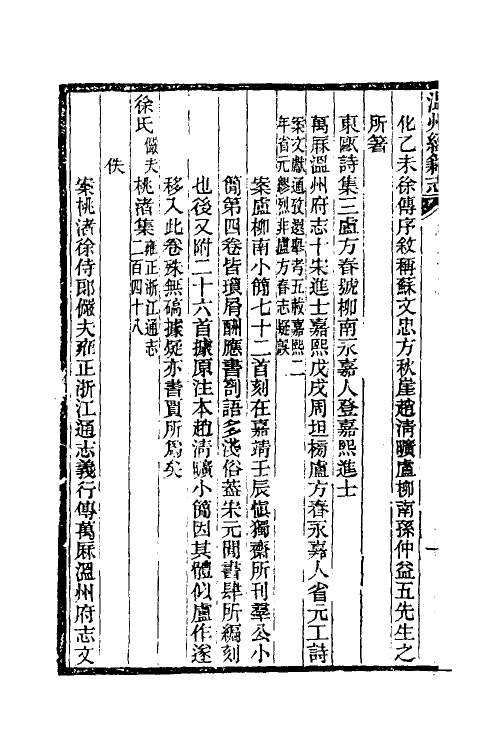 溫州經籍志
化乙未徐傳序敘稱蘇文忠方秋崖趙淸曠盧柳南孫仲益五先生之
所著
東甌詩集三盧方春號柳南永嘉人登嘉熙進士
萬厤溫州府志十宋進士嘉熙戊戌周坦榜盧方春永嘉人省元工詩
案文獻通攷選舉考五載嘉熙二
年省元繆烈非盧方春志疑誤
案盧柳南小簡七十二首刻在嘉靖壬辰愼獨齋所刊羣公小
簡第四卷皆瑣屑酬應書劄語多淺俗葢宋元閒書肆所編刻
也後又附二十六首據原注本趙淸曠小簡因其體似盧作遂
移入此卷殊無碻據疑亦書賈所爲矣
徐氏儼夫桃渚集雍正浙江通志
二百四十八
佚
案桃渚徐侍郎儼夫雍正浙江通志義行傳萬厤溫州府志文